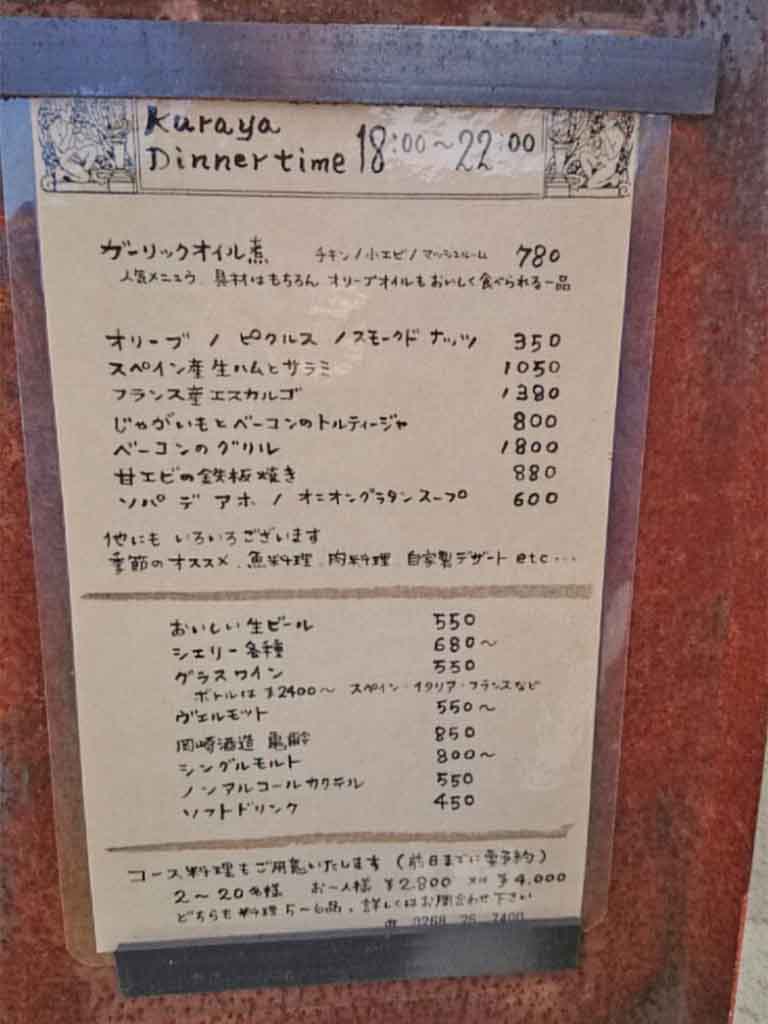 Kuraya
Dinner time 18:00〜22:00
ガーリックオイル煮 チキン/小エビ/マッシュルーム 780
人気メニュウ、具材はもちろん オリーブオイルもおいしく食べられる一品
オリーブ / ピクルス / スモークド ナッツ 350
スペイン産生ハムとサラミ 1050
フランス産エスカルゴ 1380
じゃがいもとベーコンのトルティージャ 800
ベーコンのグリル 1800
甘エビの鉄板焼き 880
ソパ デ アホ / オニオングラタンスープ 600
他にも いろいろございます
季節のオススメ、魚料理、肉料理、自家製デザート etc...
おいしい生ビール 550
シェリー各種 680〜
グラスワイン 550
ボトルは¥2400〜 スペイン・イタリア・フランスなど
ヴェルモット 550〜
岡崎酒造 亀齢 850
シングルモルト 800〜
ノンアルコールカクテル 550
ソフトドリンク 450
コース料理もご用意いたします (前日までに要予約)
2〜20名様 お一人様 ¥2,800 又は ¥4,000
どちらも料理5〜6品、詳しくはお問合わせ下さい